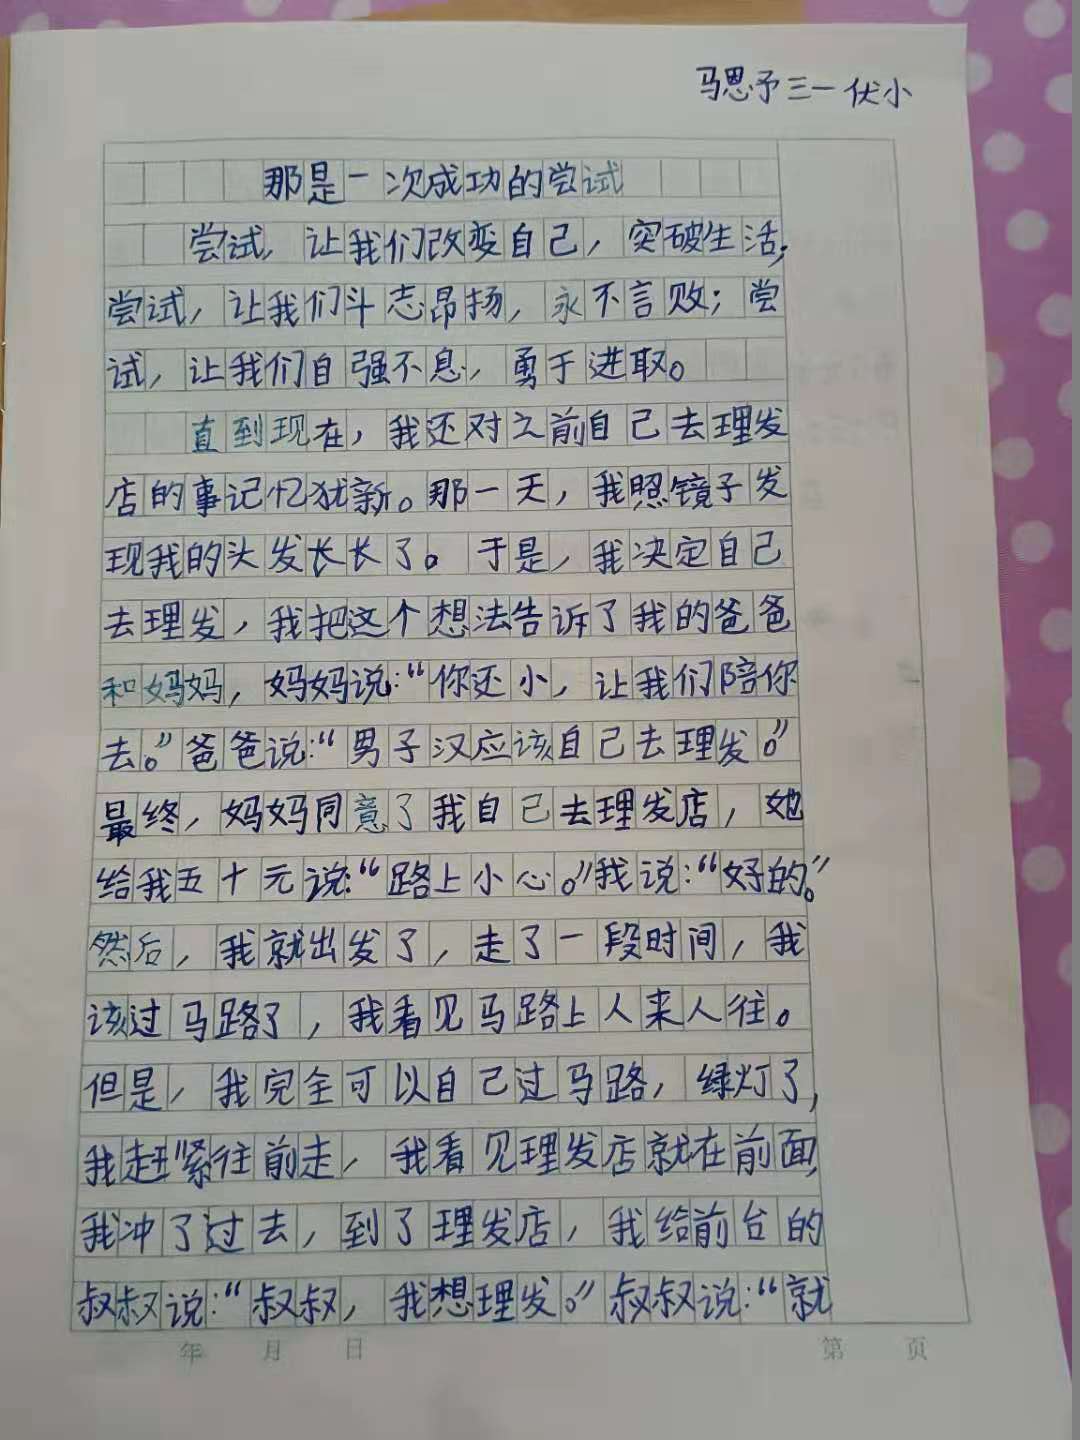 马思予三一伏小
那是一次成功的尝试
尝试,让我们改变自己,突破生活;
尝试,让我们斗志昂扬,永不言败;尝
试,让我们自强不息,勇于进取。
直到现在,我还对之前自己去理发
店的事记忆犹新。那一天,我照镜子发
现我的头发长长了。于是,我决定自己
去理发,我把这个想法告诉了我的爸爸
和妈妈,妈妈说:“你还小,让我们陪你
去。”爸爸说:“男子汉应该自己去理发。”
最终,妈妈同意了我自己去理发店,她
给我五十元说:“路上小心。”我说:“好的。”
然后,我就出发了,走了一段时间,我
该过马路了,我看见马路上人来人往。
但是,我完全可以自己过马路,绿灯了,
我赶紧往前走,我看见理发店就在前面,
我冲了过去,到了理发店,我给前台的
叔叔说:“叔叔,我想理发。”叔叔说:“就
年 月 日 第 页